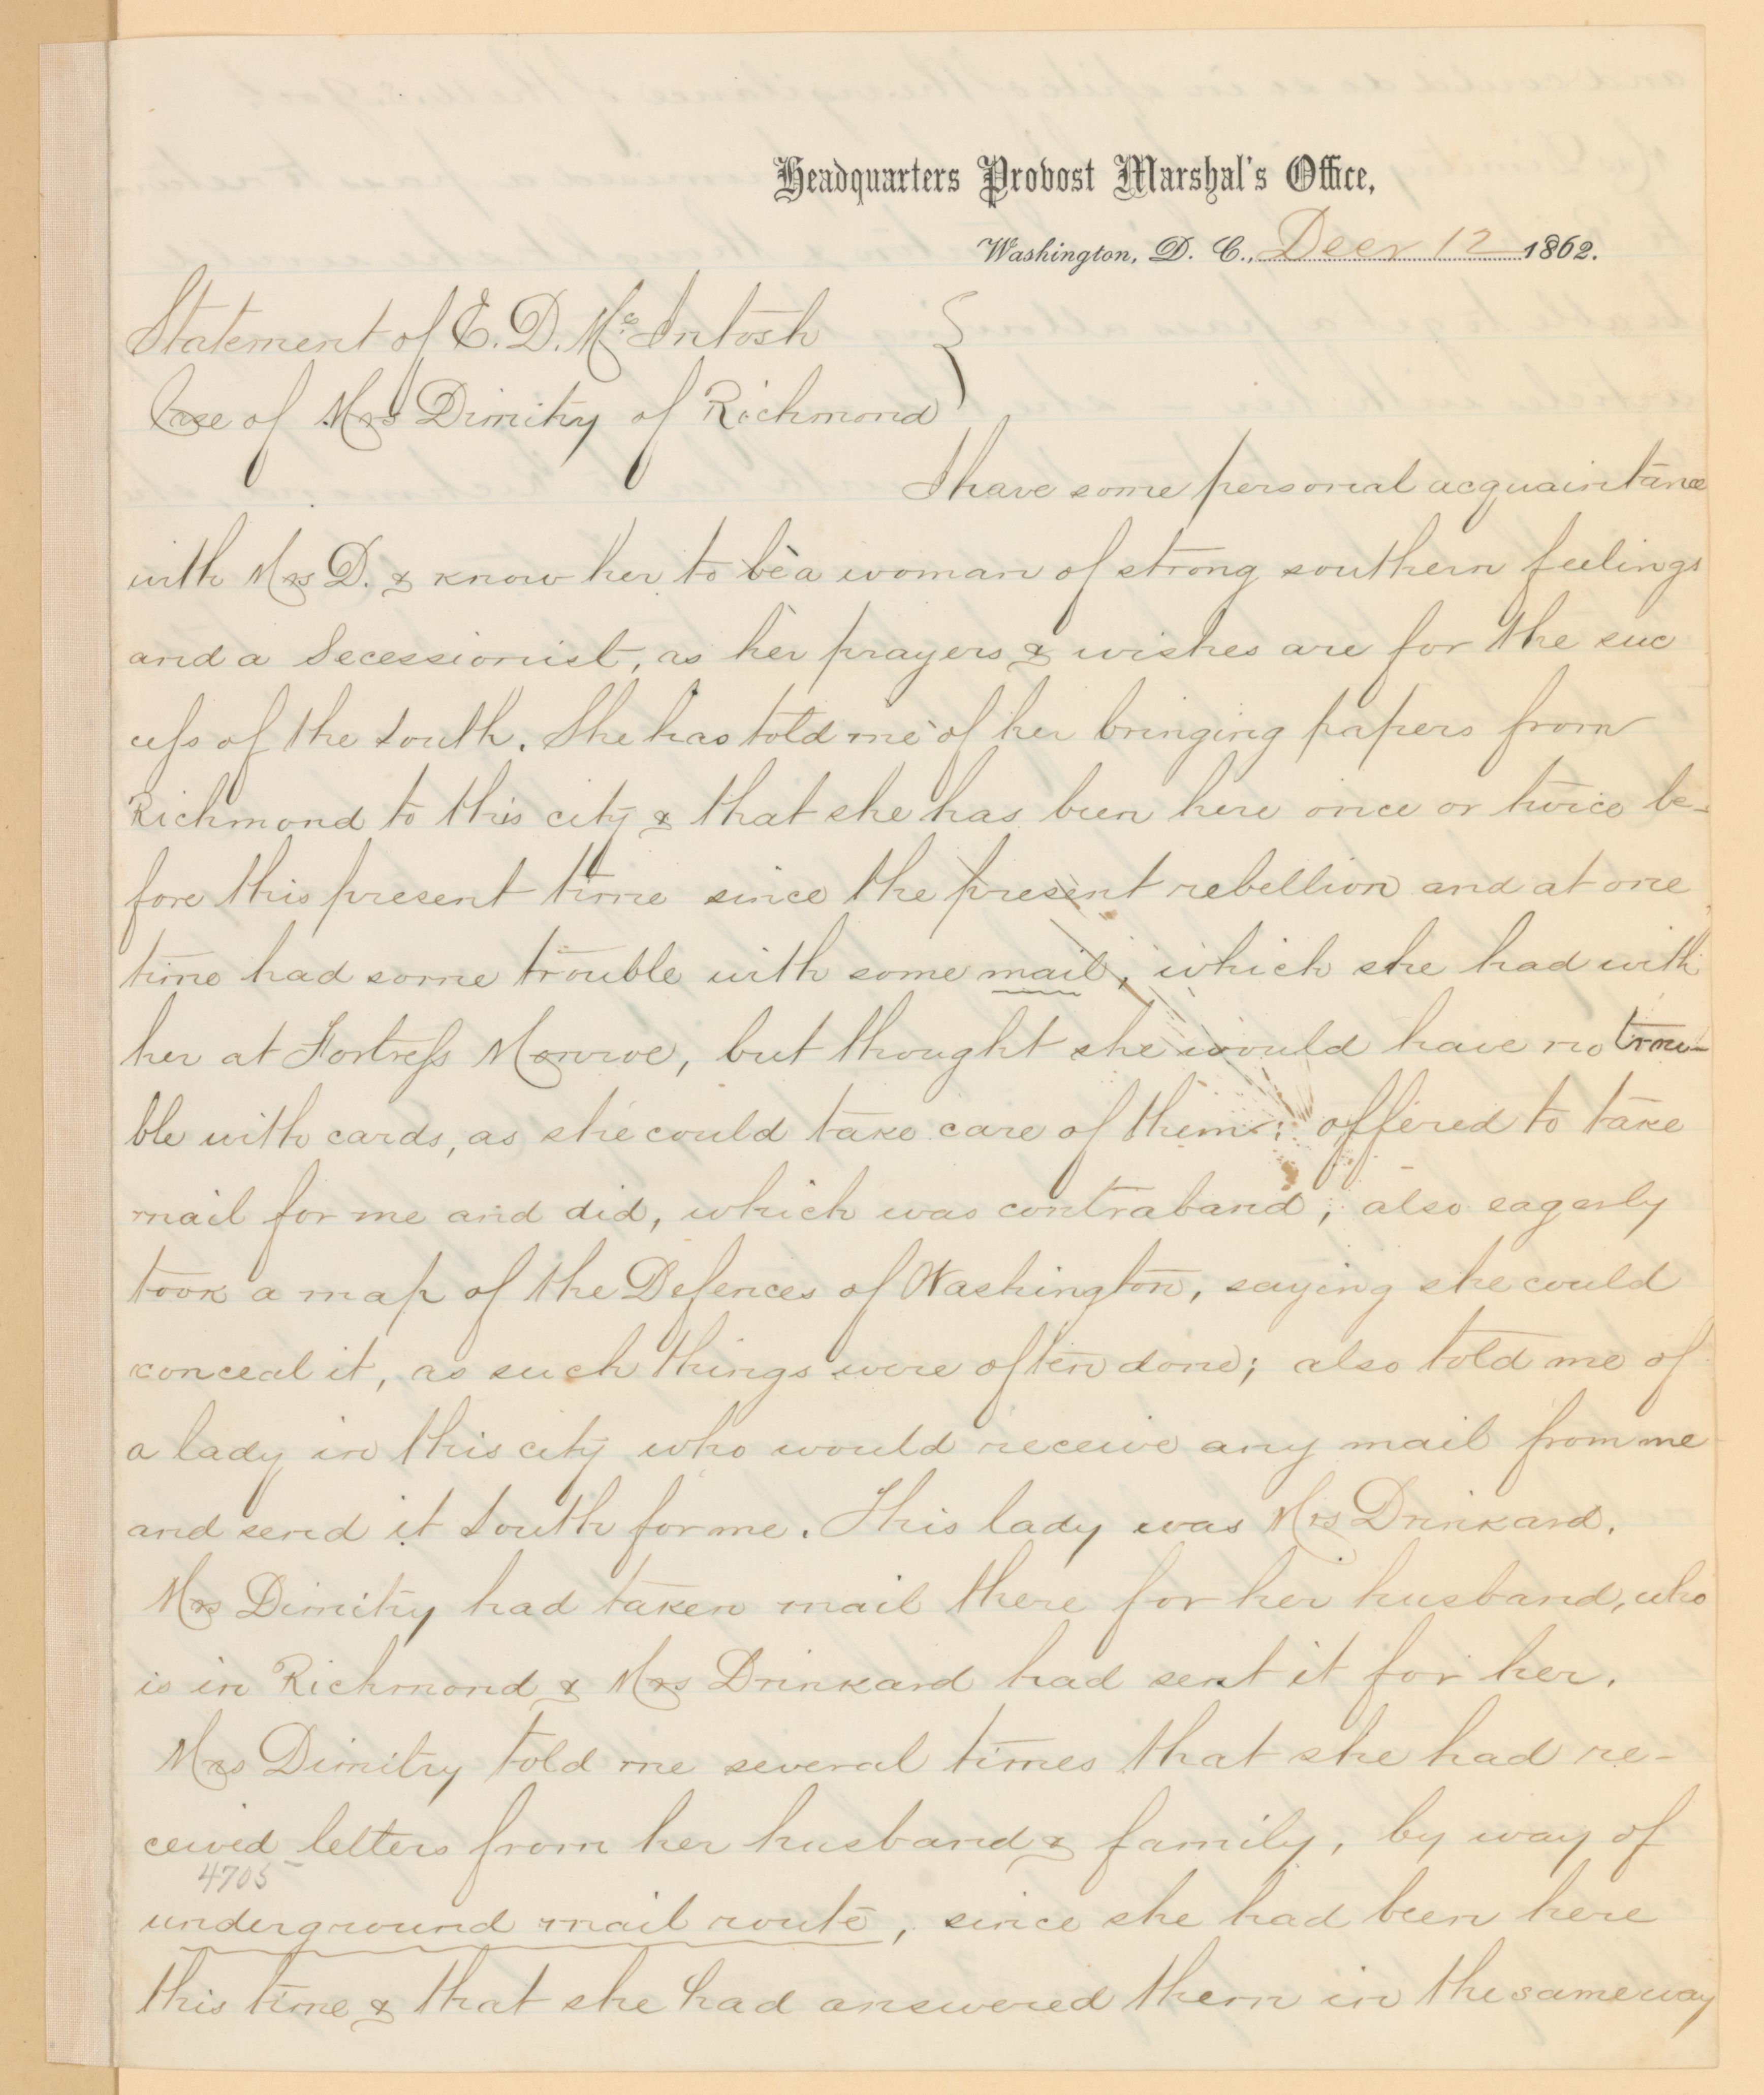 Headquarters Provost Marshal's Office,
Washington, D. C., Decr 12 1862.
Statement of E. D. McIntosh
Case of Mrs Dimitry of Richmond
I have some personal acquaintance
with Mrs D. & know her to be a woman of strong southern feelings
and a Secessionist, as her prayers & wishes are for the suc
cess of the South. She has told me of her bringing papers from
Richmond to this city & that she has been here once or twice be-
fore this present time since the present rebellion and at one
time had some trouble with some mail, which she had with
her at Fortress Monroe, but thought she would have no trou-
ble with cards, as she could take care of them: offered to take
mail for me and did, which was contraband; also eagerly
took a map of the Defences of Washington, saying she could
conceal it, as such things were often done; also told me of
a lady in this city who would receive any mail from me
and send it South for me. This lady was Mrs Drinkard.
Mrs Dimitry had taken mail there for her husband, who
is in Richmond & Mrs Drinkard had sent it for her.
Mrs Dimitry told me several times that she had re-
ceived letters from her husband & family, by way of
4705
underground mail route, since she had been here
this time & that she had answered them in the same way